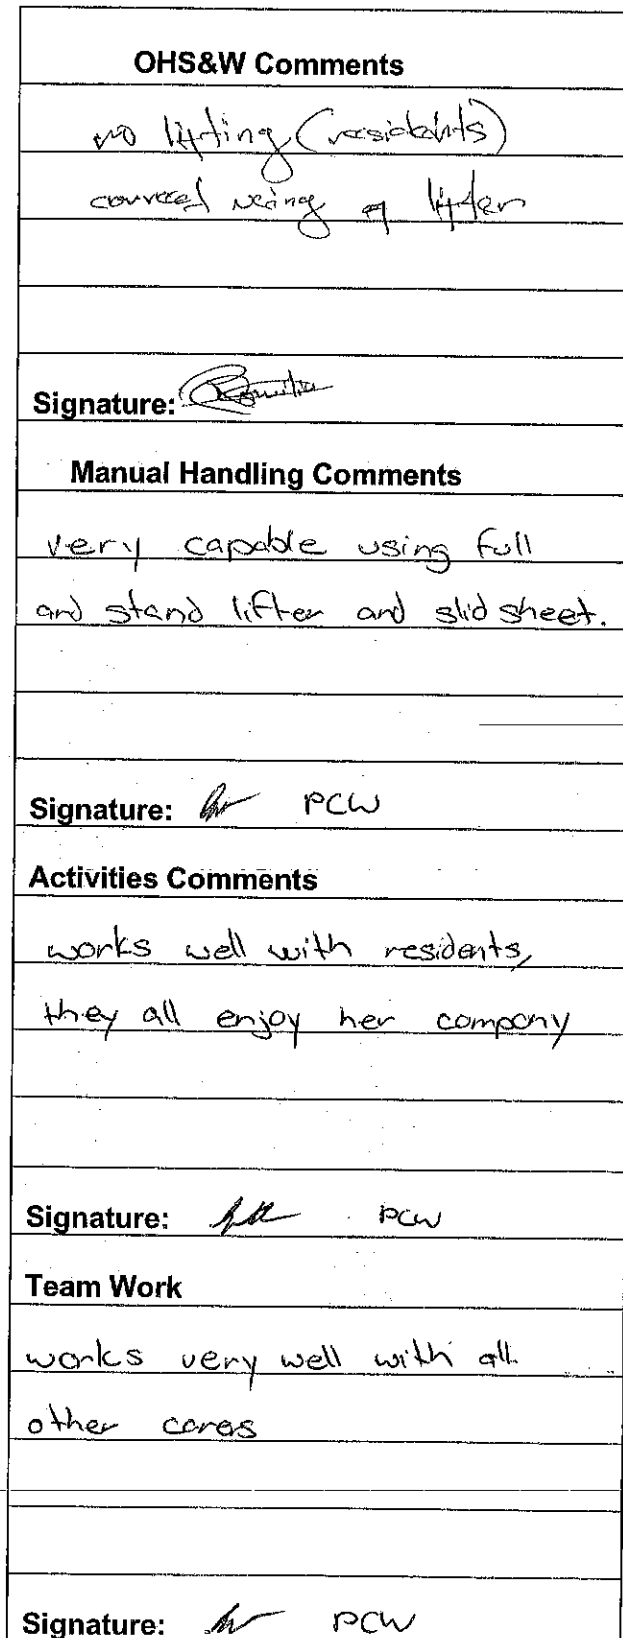 OHS&W Comments
no lifting (residents)
lifter
Signature:
Manual Handling Comments
very capable using full
and stand lifter and slid sheet.
Signature: PCW
Activities Comments
works well with residents,
they all enjoy her company
Signature: PCW
Team Work
works very well with all
other cares
Signature: PCW